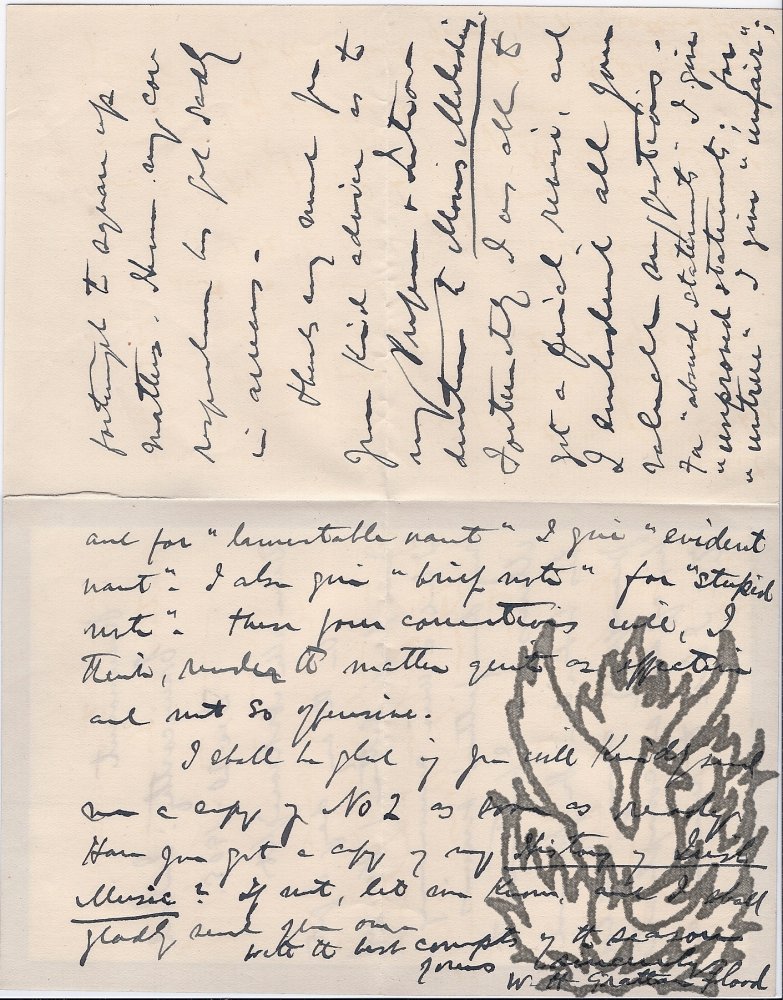 fortnight to square up
matters. Hence my cor-
respondence has got sadly
in arrears.
Thanks very much for
your kind advice as to
my Preface & Intro-
duction to Moore's Melodies.
Fortunately I was able to
get a final revise, and
I embodied all your
valuable suggestions.
For "absurd statements" I give
"unproved statements"; for
"untrue" I give "unfair";
and for "lamentable want" I give "evident
want". I also give "brief note" for "stupid
note". These four corrections will, I
think, render the matter quite as effective
and not so offensive.
I shall be glad if you will kindly send
me a copy of No 2 as soon as ready.
Have you got a copy of my History of Irish
Music? If not, let me know, and I shall
gladly send you one.
With the best compts of the season
Yours sincerely
W. H. Grattan Flood